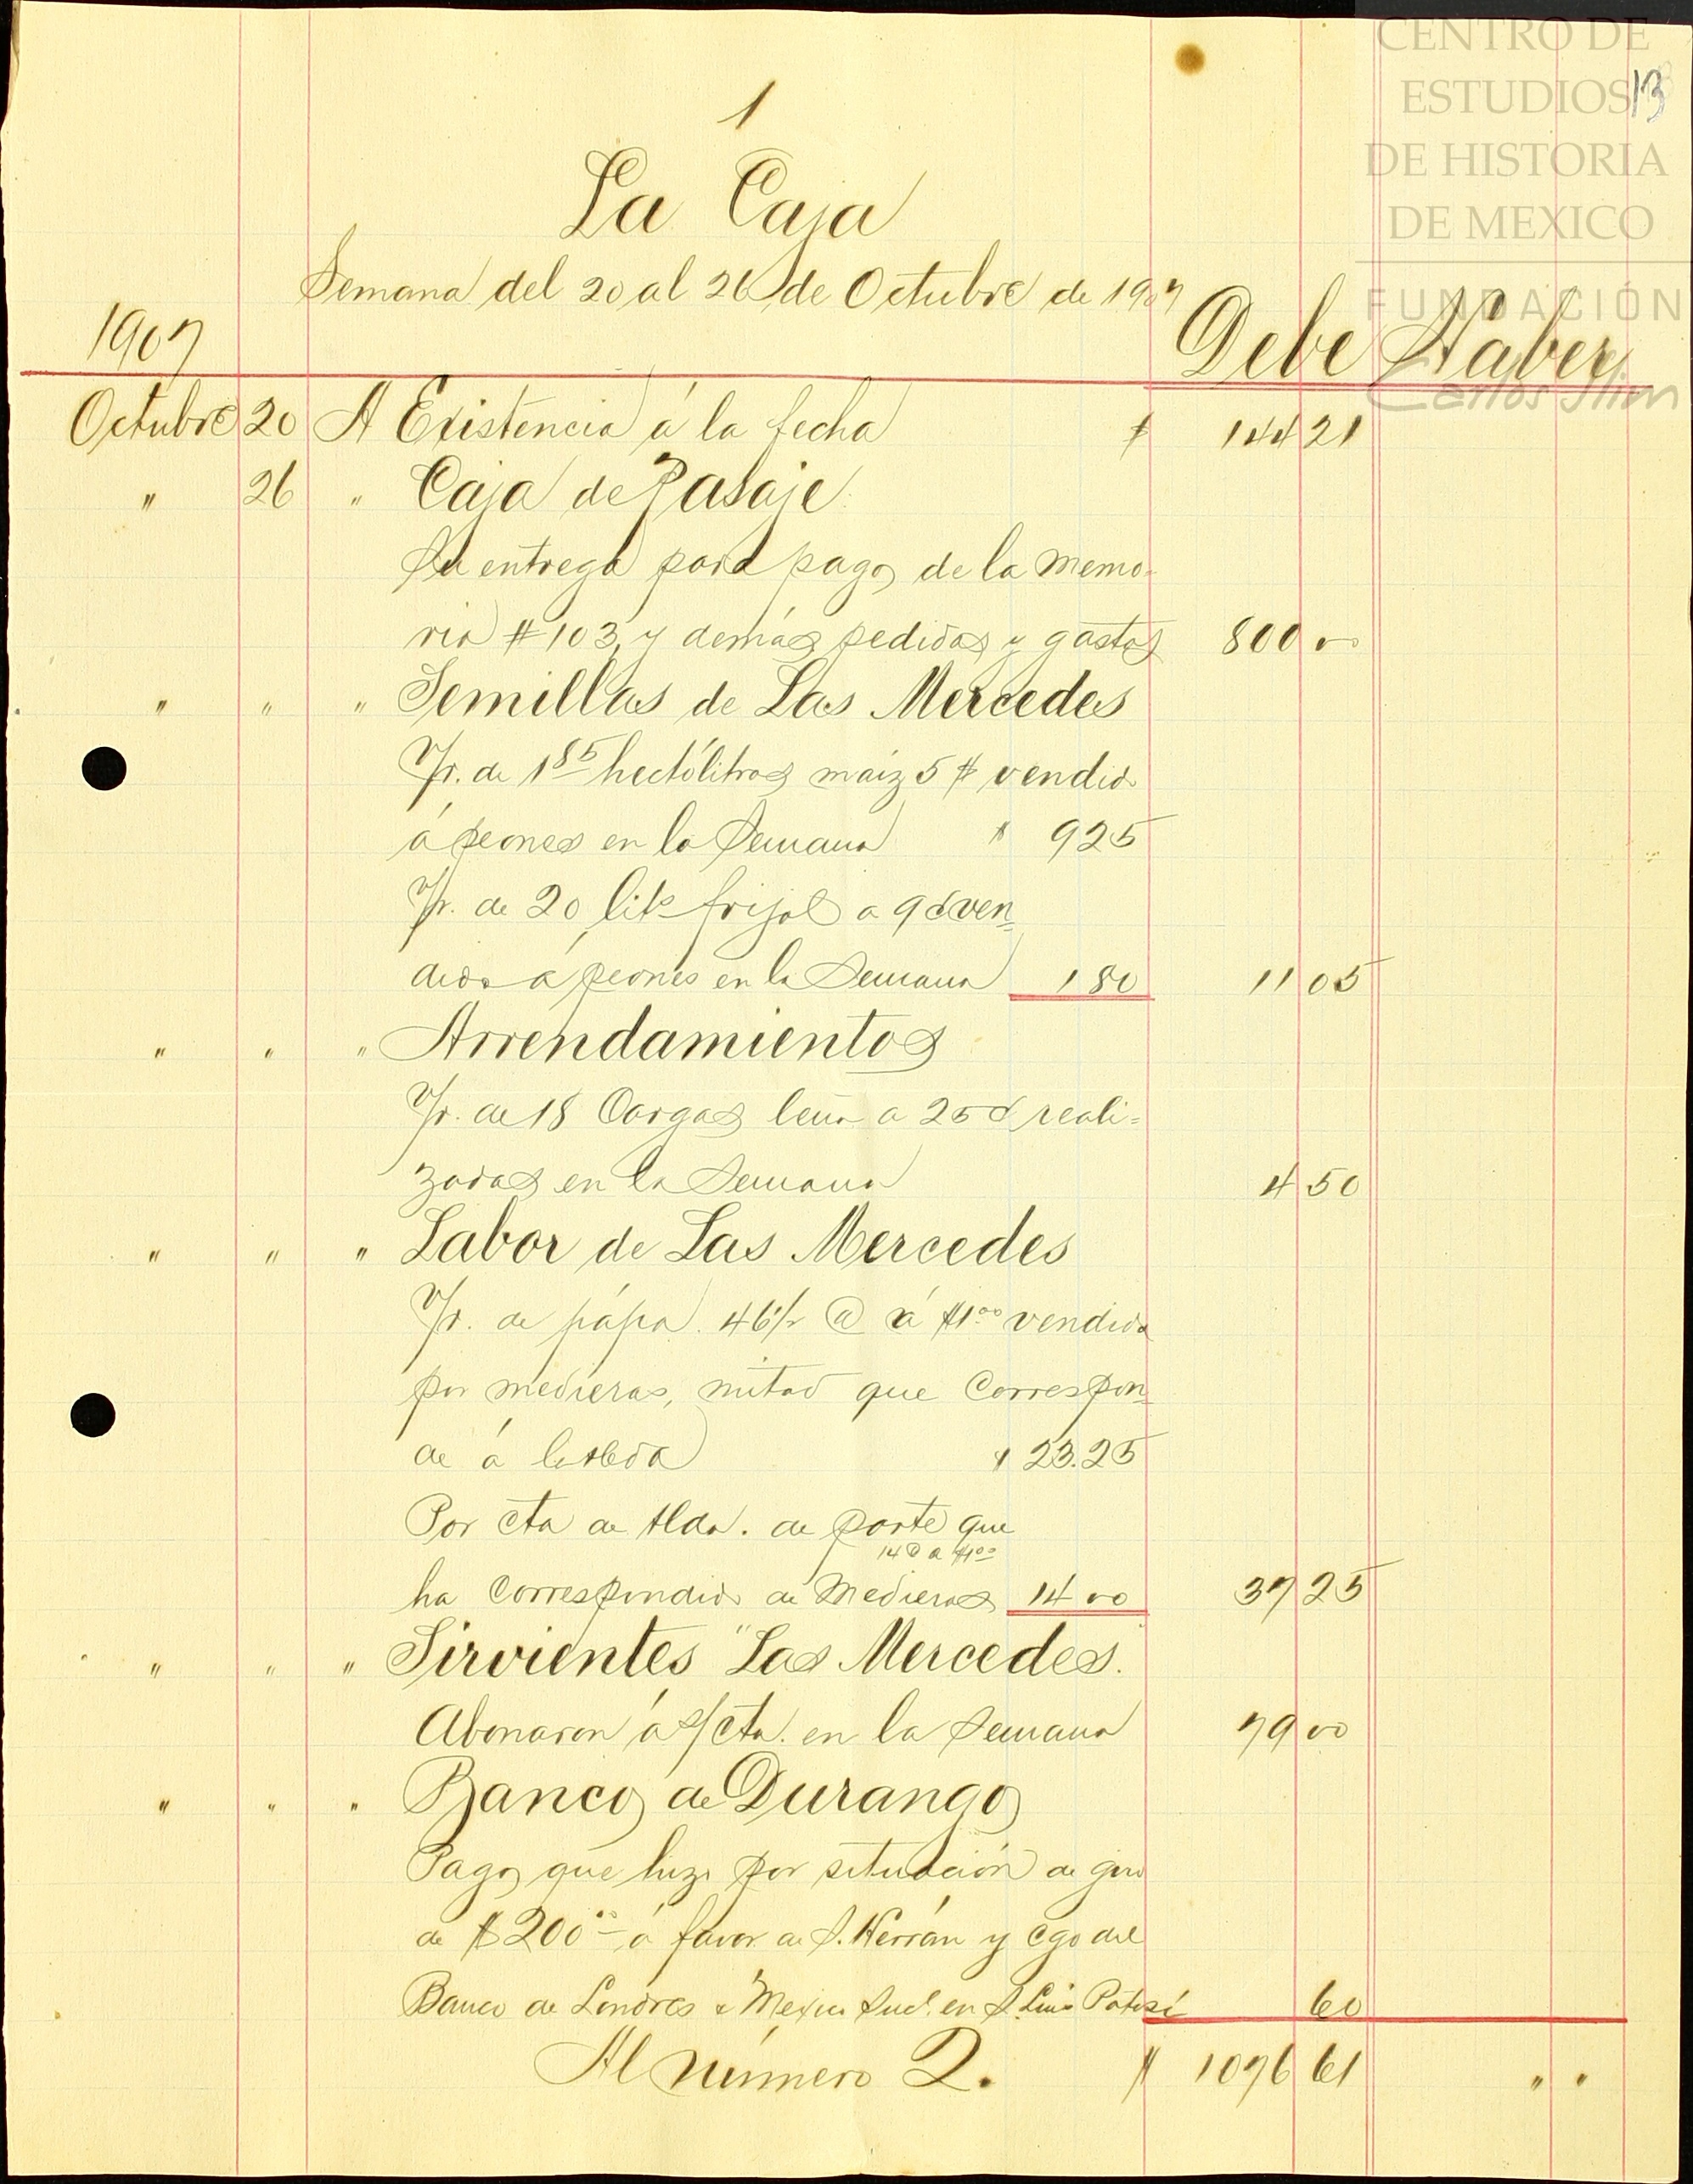 CENTRO DE
ESTUDIOS
DE HISTORIA
DE MEXICO
FUNDACIÓN
Carlos Slim
13
1
La Caja
Semana del 20 al 26 de Octubre de 1907
1907 Debe Haber
Octubre 20 A Existencia á la fecha $ 144 21
" 26 " Caja de Rasaje
Su entrega para pago de la memo-
ria #103, y demás pedidos y gastos 800 00
" " " Semillas de Las Mercedes
Vr. de 1 85 hectólitros maiz 5 $ vendido
á peones en la Semana $ 9 25
Vr. de 20 lits frijol a 9 ¢ ven=
dido a peones en la Semana 1 80 11 05
" " " Arrendamientos
Vr. de 18 Cargas leña a 25 ¢ reali=
zadas en la Semana 4 50
" " " Labor de Las Mercedes
Vr. de pápa 46½ @ á $1 00 vendida
por medieros, mitad que Correspon=
de á la Hda $ 23.25
Por cta de Hda. de parte que
14 @ a $1 00
ha Correspondido de Medieros 14 00 37 25
" " " Sirvientes "Las Mercedes.
Abonaron á s/cta. en la Semana 79 00
" " " Banco de Durango
Pago que hizo por situación de giro
de $200 00 á favor de S. Herrán y cgo del
Banco de Londres & Mexico Sucl. en S. Luis Potosí 60
Al número 2. $ 1076 61 " "